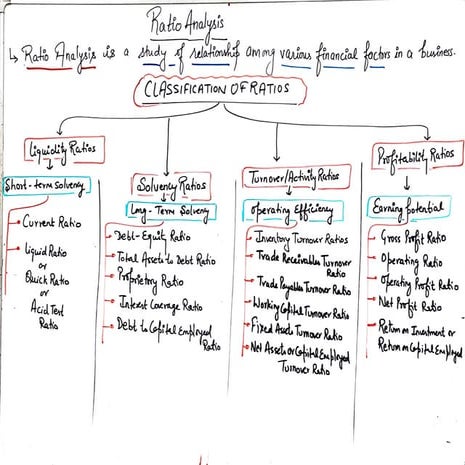 Ratio Analysis
↳ Ratio Analysis is a study of relationship among various financial factors in a business.
CLASSIFICATION OF RATIOS
Liquidity Ratios
Short-term solvency
Current Ratio
Liquid Ratio
or
Quick Ratio
or
Acid Test
Ratio
Solvency Ratios
Long-Term Solvency
Debt-Equity Ratio
Total Assets to Debt Ratio
Proprietary Ratio
Interest Coverage Ratio
Debt to Capital Employed
Ratio
Turnover/Activity Ratios
Operating Efficiency
Inventory Turnover Ratios
Trade Receivables Turnover
Ratio
Trade Payables Turnover Ratio
Working Capital Turnover Ratio
Fixed Assets Turnover Ratio
Net Assets or Capital Employed
Turnover Ratio
Profitability Ratios
Earning potential
Gross Profit Ratio
Operating Ratio
Operating Profit Ratio
Net Profit Ratio
Return on Investment or
Return on Capital Employed